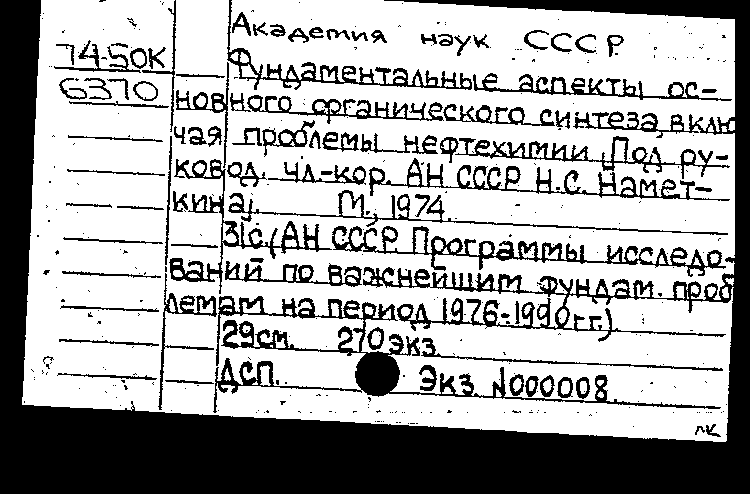 Академия наук СССР
74-50К
Фундаментальные аспекты ос-
6370
новного органического синтеза, вклю
чая проблемы нефтехимии [Под ру-
ковод. чл-кор. АН СССР Н.С. Намет-
кина]. М., 1974.
31с. (АН СССР. Программы исследо-
ваний по важнейшим фундам. проб
лемам на период 1976-1990гг.)
29см. 270экз.
ДСП. Экз №000008.
лк